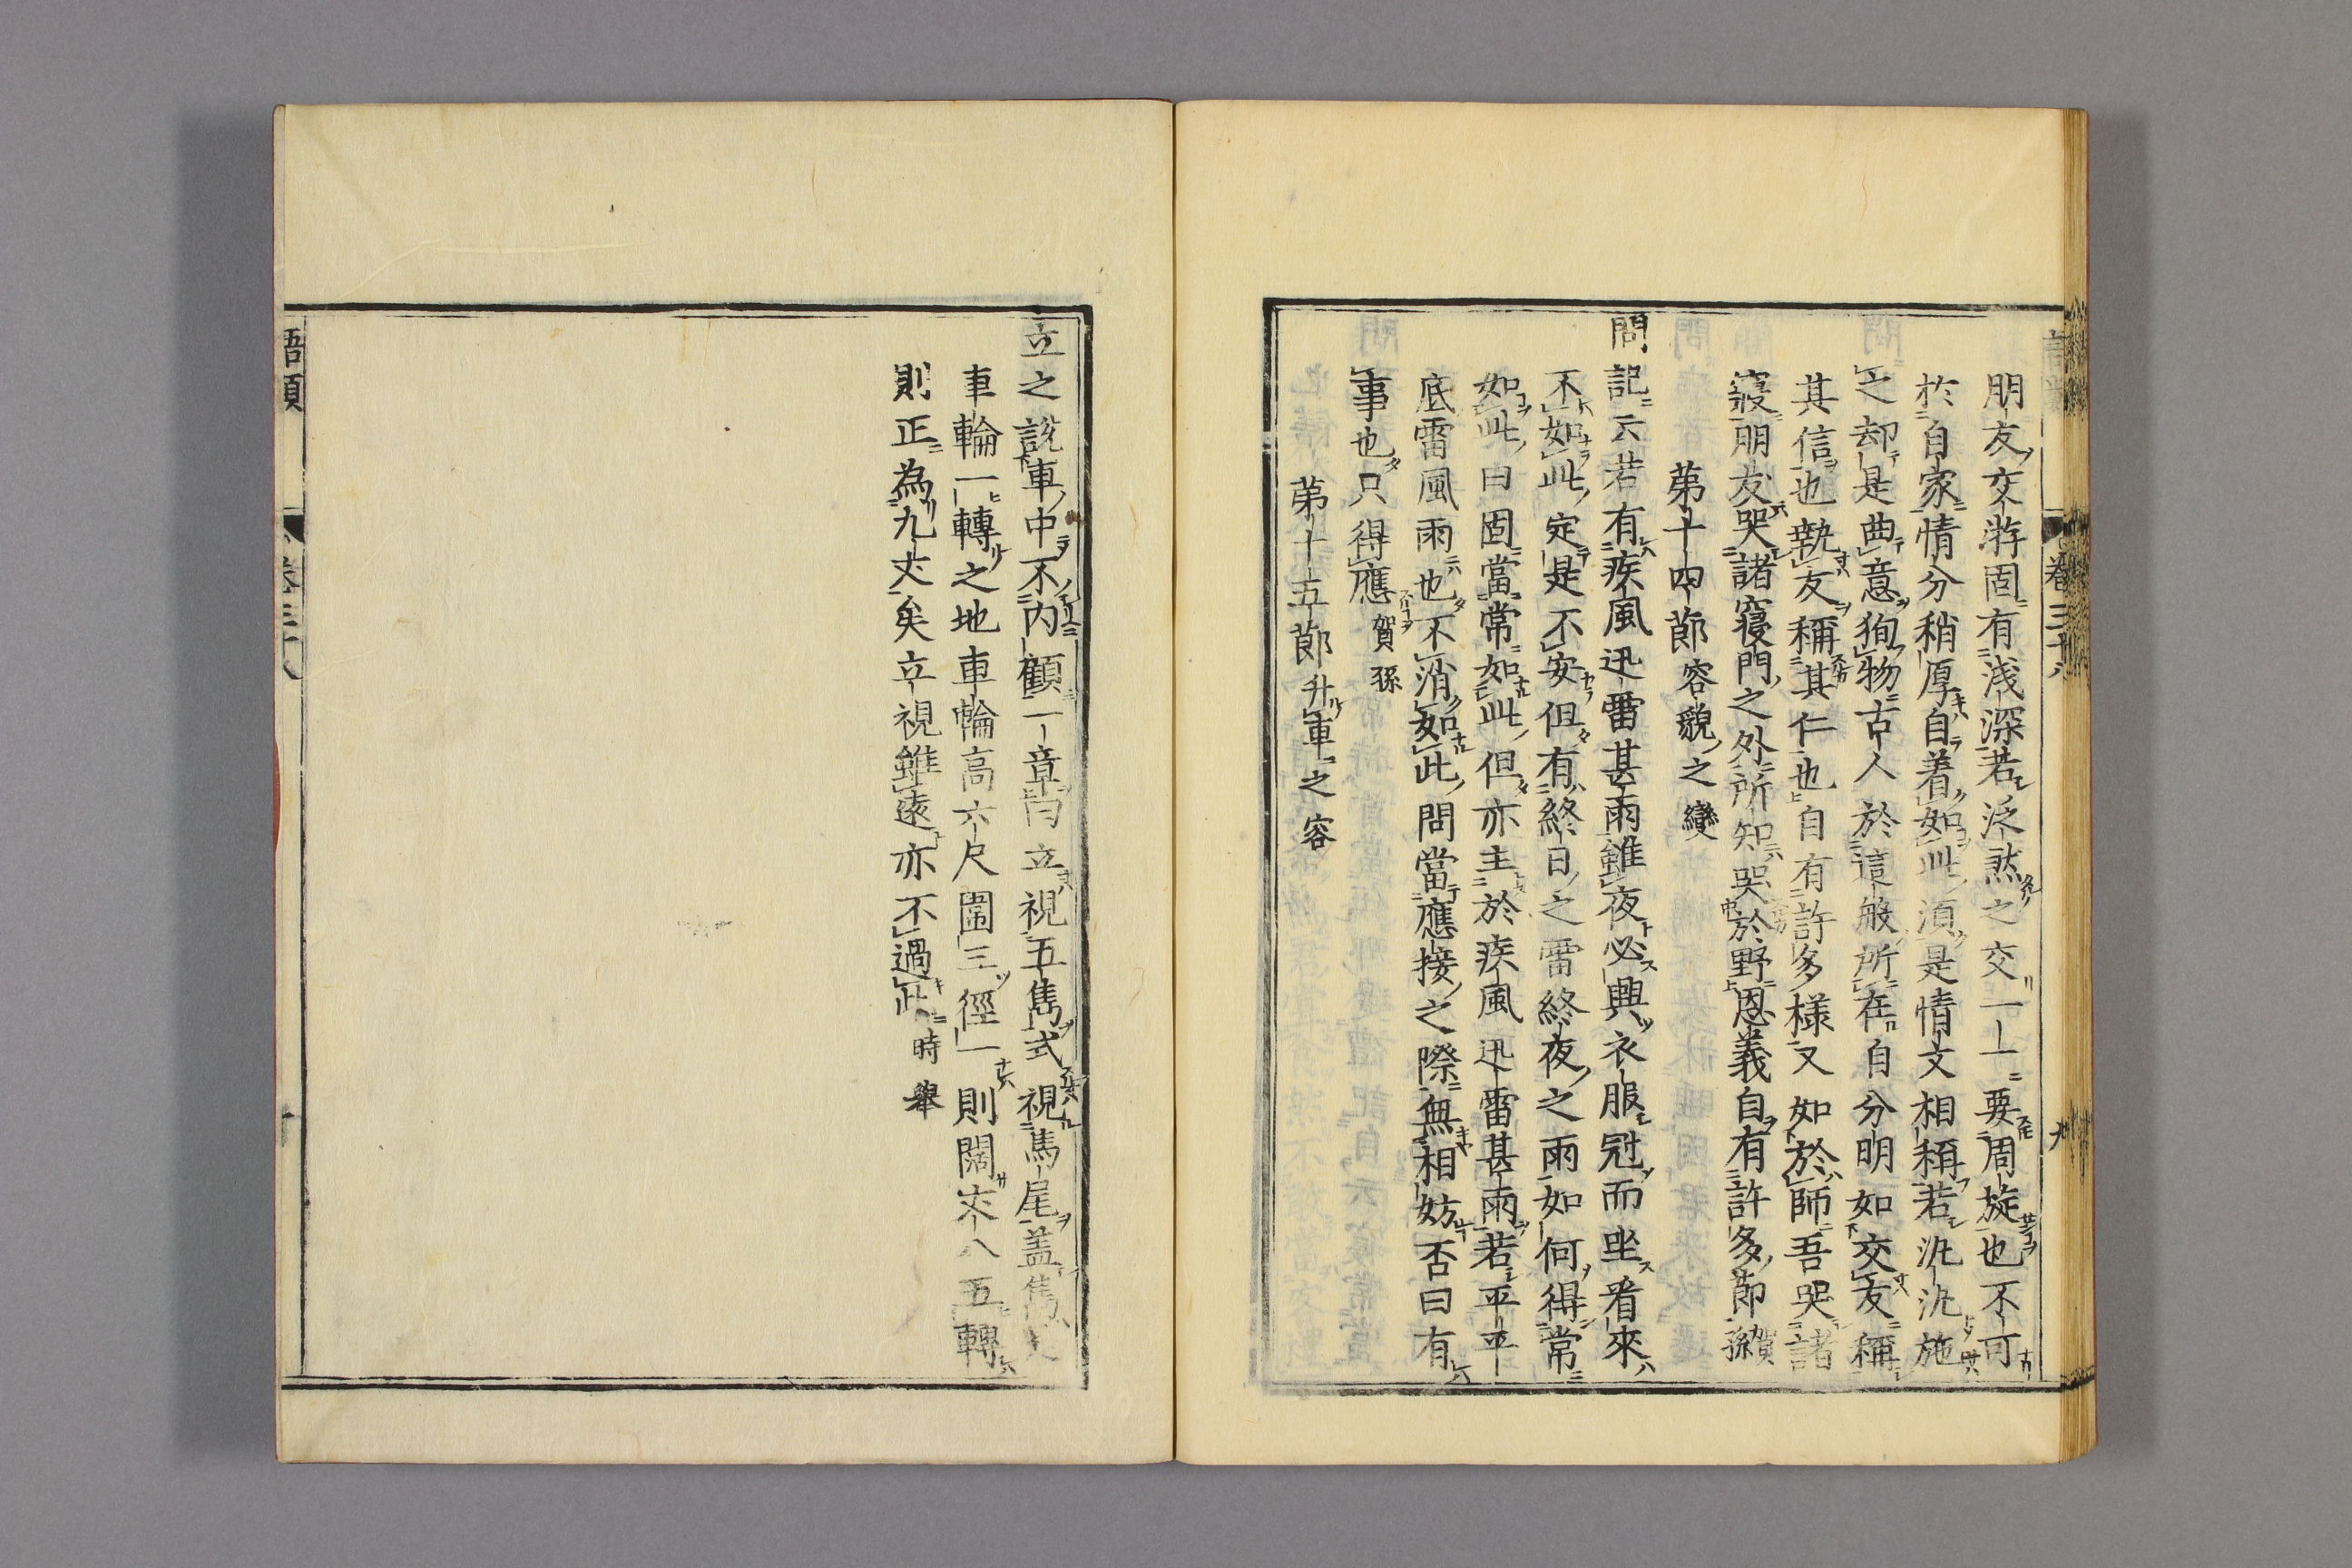 朋友交游固有浅深若泛然之交一一要周旋也不可
於自家情分稍厚自着如此須是情文相稱若汎汎施
之却是曲意徇物古人於這般所在自分明如交友稱
其信也執友稱其仁也自有許多様又如於師吾哭諸
寢朋友哭諸寢門之外所知哭於野恩義自有許多節賀孫
第十四節容貌之變
問記云若有疾風迅雷甚雨雖夜必興衣服冠而坐看來
不如此定是不安但有終日之雷終夜之雨如何得常
如此曰固當常如此但亦主於疾風迅雷甚雨若平平
底雷風雨也不消如此問當應接之際無相妨否曰有
事也只得應賀孫
第十五節升車之容
立之說車中不內顧一章曰立視五雋式視馬尾盖雋
車輪一轉之地車輪高六尺圍三徑一則闊丈八五轉
則正為九丈矣立視雖遠亦不過此時舉
卷三十八
九
語類
卷三十八